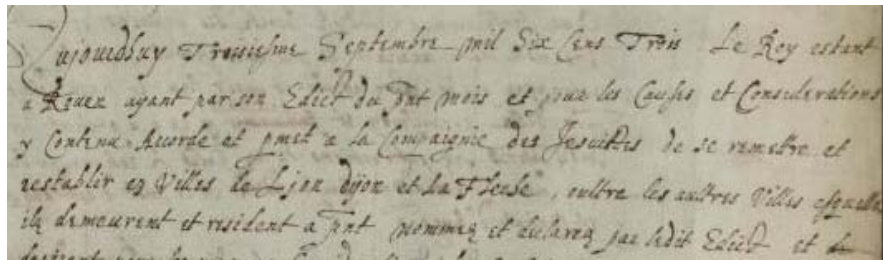 Aujourdhuy Troisiesme Septembre mil Six Cens Trois Le Roy estant
a Rouen ayant par son Edict du pnt mois et pour les Causes et Considerations
y Contenu Accorde et pmet a la Compaignie des Jesuittes de se remettre et
restablir es Villes de Lyon dijon et la Flesche, oultre les aultres Villes esquelles
ilz demeurent et resident a pnt nommez et declarez par ledit Edict et de